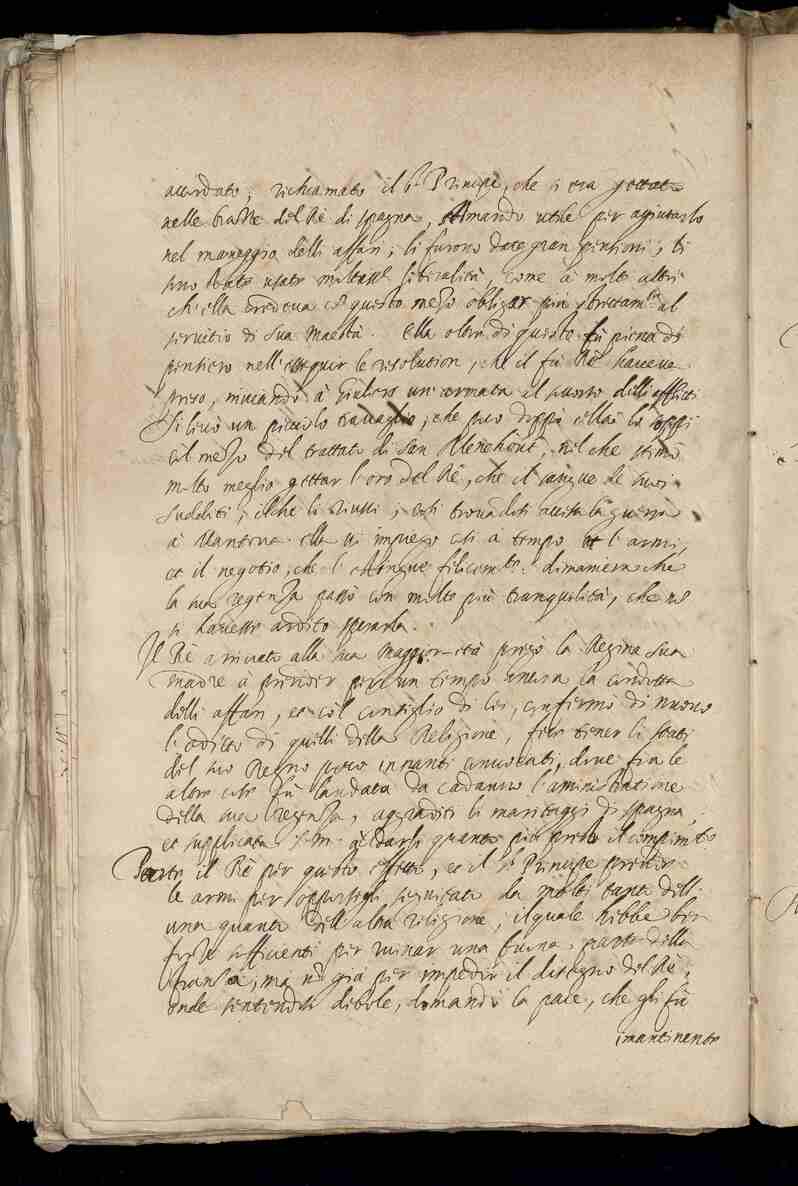 accordato; richiamato il S.r Principe, che si era gettato
nelle braccia del Rè di spagna, stimando utile per agiutarlo
nel maneggio delli affari; li furono date gran pensioni; ti
suo stato usato moltiss.e liberalità, come à molti altri
ch'ella credeva cõ questo mezo obligar più strettam.te al
servitio di Sua Maestà. Ella oltre di queste fù piena di
pensiero nell'esseguir le resolution, che il fù Rè haveva
preso, inviando à Giuliers un'armata al
Si levò un piccolo travaglio, che può doppia
col mezo del trattato di San Menehout, nel che stimò
molto meglio gettar l'oro del Rè, che il sangue de suoi
sudditi; ilche li riussì; essendosi accesa la guerra
à Mantova ella vi impiegò così à tempo et l'armi,
et il negotio, che l'estingue felicem.te dimaniera che
la sua regenza passò con molto più tranquilità, che nõ
si havesse ardito sperarla.
Il Rè arrivato alla sua Maggior-età pregò la Regina sua
Madre à prender per un tempo ancora la condotta
delli affari, et col consiglio di lei, confirmò di nuovo
l'editto di quelli della Religione, fece tener li stati
del suo Regno poco innanti convocati, dove fra le
altre cose fù laudata da cadauno l'aministratione
della sua regenza, aggraditi li maritaggi di spagna,
et supplicata S. M. di darli quanto più presto il compim.to
Parte il Rè per questo effetto, et il S.r Principe prender
le armi per opporsegli seguitato da molti tanto dell'
una quanto dell'altra religione, ilquale hebbe ben
forze assicienti per ruinar una buona parte della
franza, ma nõ già per impedir il disegno del Rè,
onde sentendosi debole, domandò la pace, che gli fù
imantinente